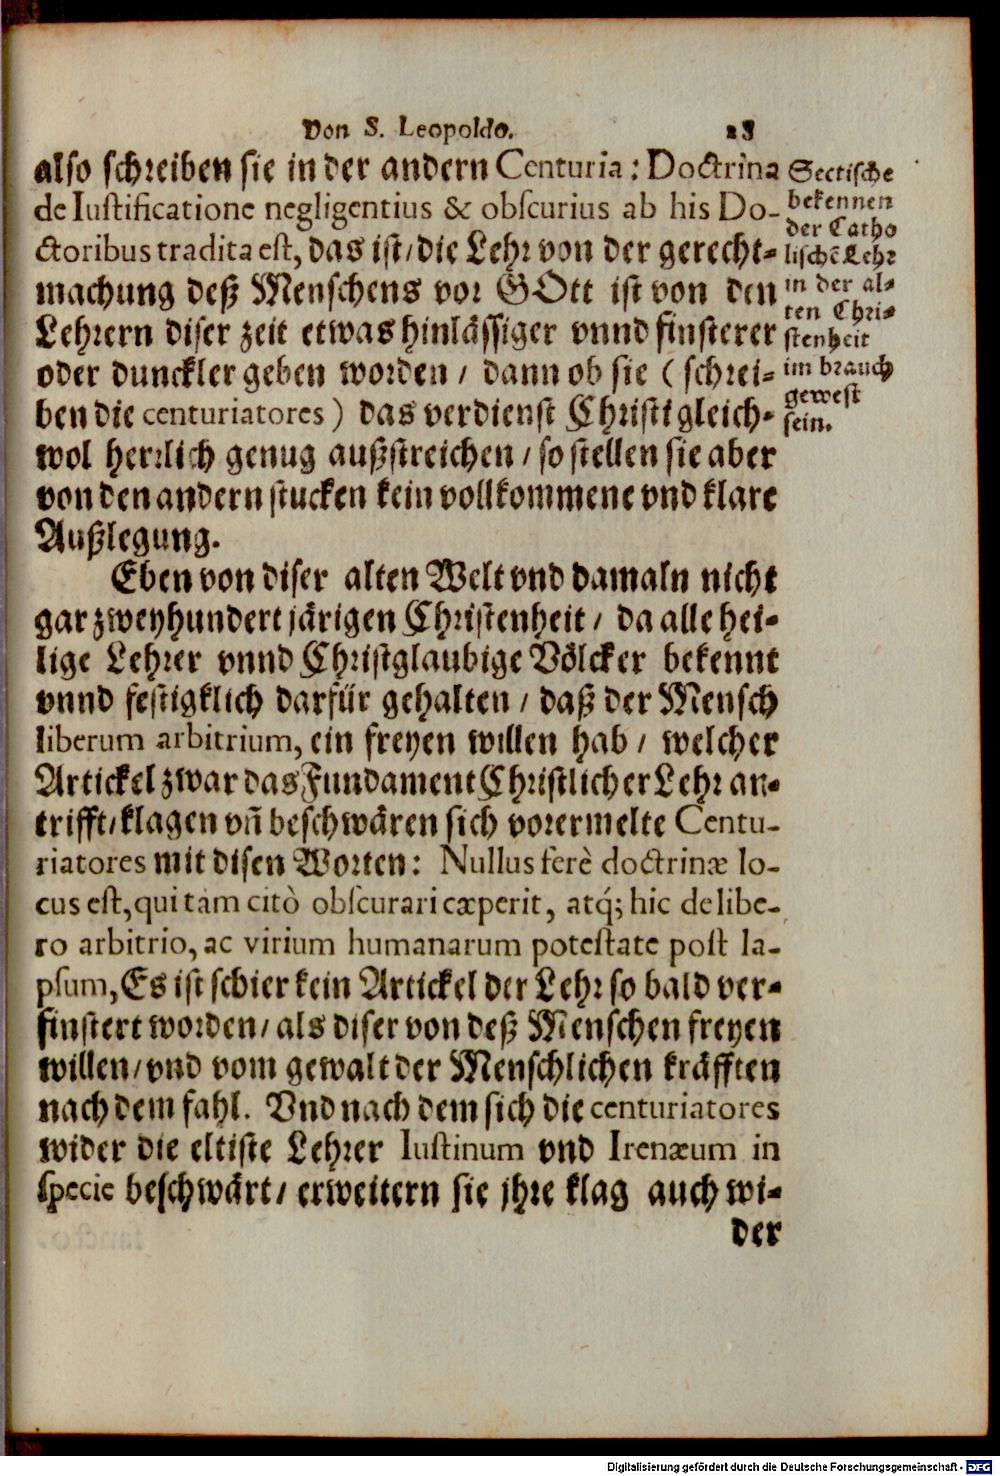 Von S. Leopoldo. 23
also schreiben sie in der andern Centuria: Doctrina
de Iustificatione negligentius & obscurius ab his Do-
ctoribus tradita est, das ist/ die Lehr von der gerecht-
machung deß Menschens vor GOtt ist von den
Lehrern diser zeit etwas hinlässiger vnnd finsterer
oder dunckler geben worden / dann ob sie ( schrei-
ben die centuriatores ) das verdienst Christi gleich-
wol herrlich genug außstreichen / so stellen sie aber
von den andern stucken kein vollkommene vnd klare
Außlegung.
Sectische
bekennen
der Catho
lischẽ Lehr
in der al-
ten Chri-
stenheit
im brauch
gewest
sein.
Eben von diser alten Welt vnd damaln nicht
gar zweyhundert järigen Christenheit / da alle hei-
lige Lehrer vnnd Christglaubige Völcker bekennt
vnnd festigklich darfür gehalten / daß der Mensch
liberum arbitrium, ein freyen willen hab / welcher
Artickel zwar das Fundament Christlicher Lehr an-
trifft/ klagen vñ beschwären sich vorermelte Centu-
riatores mit disen Worten: Nullus ferè doctrinæ lo-
cus est, qui tam citò obscurari cæperit, atq́; hic de libe-
ro arbitrio, ac virium humanarum potestate post la-
psum, Es ist schier kein Artickel der Lehr so bald ver-
finstert worden/ als diser von deß Menschen freyen
willen/ vnd vom gewalt der Menschlichen kräfften
nach dem fahl. Vnd nach dem sich die centuriatores
wider die eltiste Lehrer Iustinum vnd Irenæum in
specie beschwärt/ erweitern sie jhre klag auch wi-
der
Digitalisierung gefördert durch die Deutsche Forschungsgemeinschaft - DFG